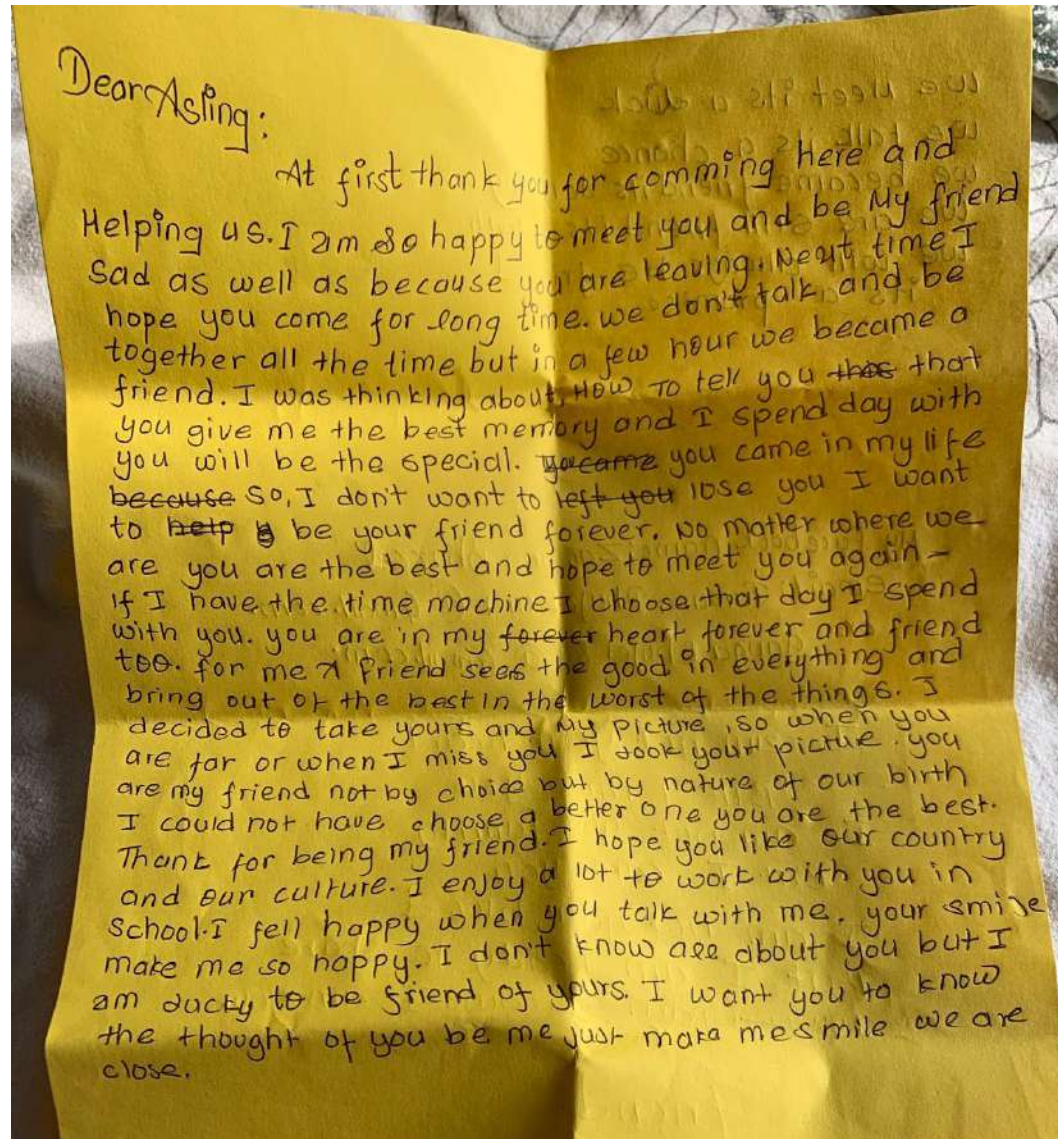 Dear Asling:
At first thank you for comming Here and
Helping us. I am so happy to meet you and be My friend
Sad as well as because you are leaving. Next time I
hope you come for long time. we don't talk and be
together all the time but in a few hour we became a
friend. I was thinking about, HOW TO tell you that
you give me the best memory and I spend day with
you will be the special. you came in my life
because So, I don't want to left you lose you I want
to help be your friend forever. No matter where we
are you are the best and hope to meet you again-
If I have the time machine I choose that day I spend
with you. you are in my forever heart forever and friend
too. for me A friend sees the good in everything and
bring out of the best in the worst of the things. I
decided to take yours and My picture, so when you
are far or when I miss you I look your picture. you
are my friend not by choice but by nature of our birth
I could not have choose a better one you are the best.
Thank for being my friend. I hope you like our country
and our culture. I enjoy a lot to work with you in
School. I fell happy when you talk with me. your smile
make me so happy. I don't know all about you but I
am lucky to be friend of yours. I want you to know
the thought of you be me just make me smile we are
close.